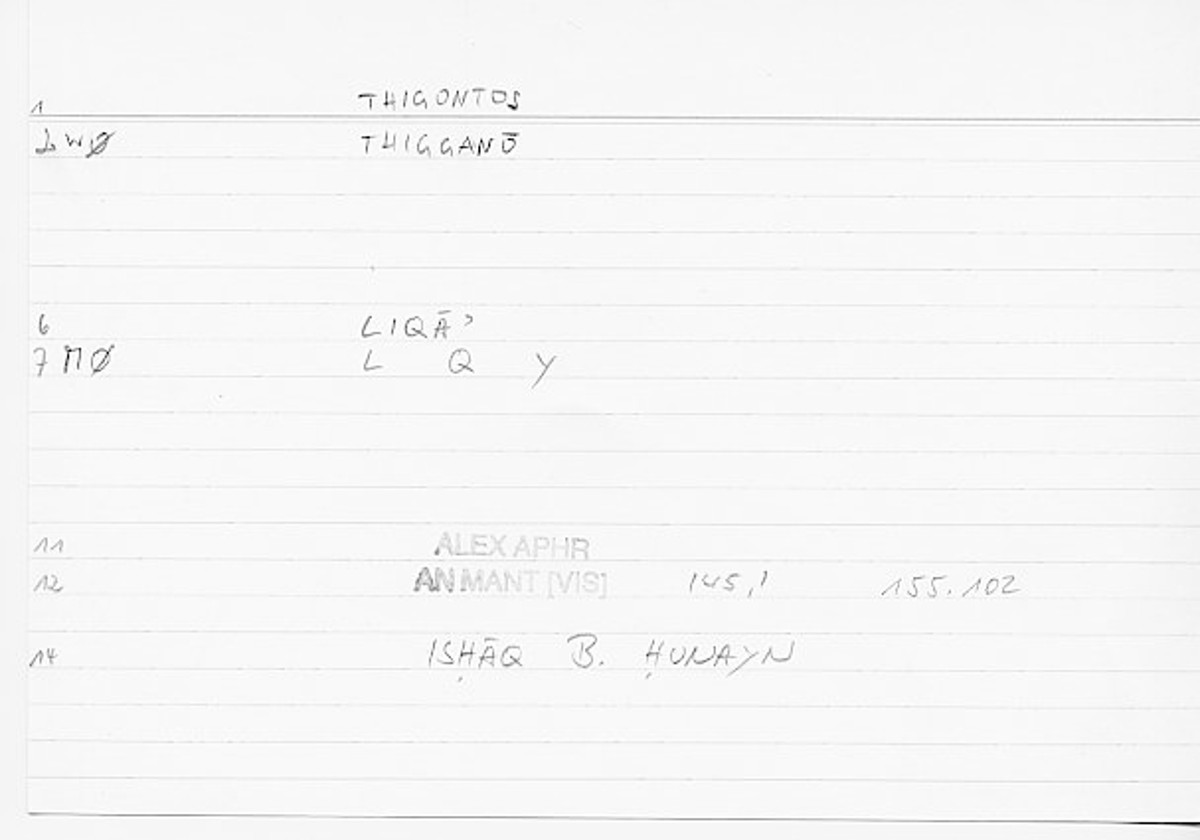 1 THIGONTOS
2 WØ THIGGANŌ
6 LIQĀʾ
7 MØ L Q Y
11 ALEX APHR
12 AN MANT [VIS] 145,1 155.102
14 ISḤĀQ B. ḤUNAYN